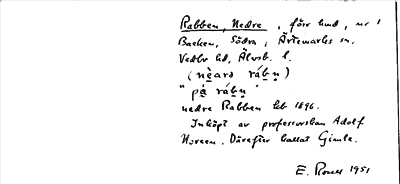 Rabben, Nedre, förr hmd, nr 1
Backen, Södra, Ärtemarks sn.
Vedbo hd, Älvsb. l.
(nèarə rábṇ)
"på rábṇ"
nedre Rabben köpt 1896.
Inköpt av professorskan Adolf
Noreen. Därefter kallat Gimle.
E. Rosell 1951